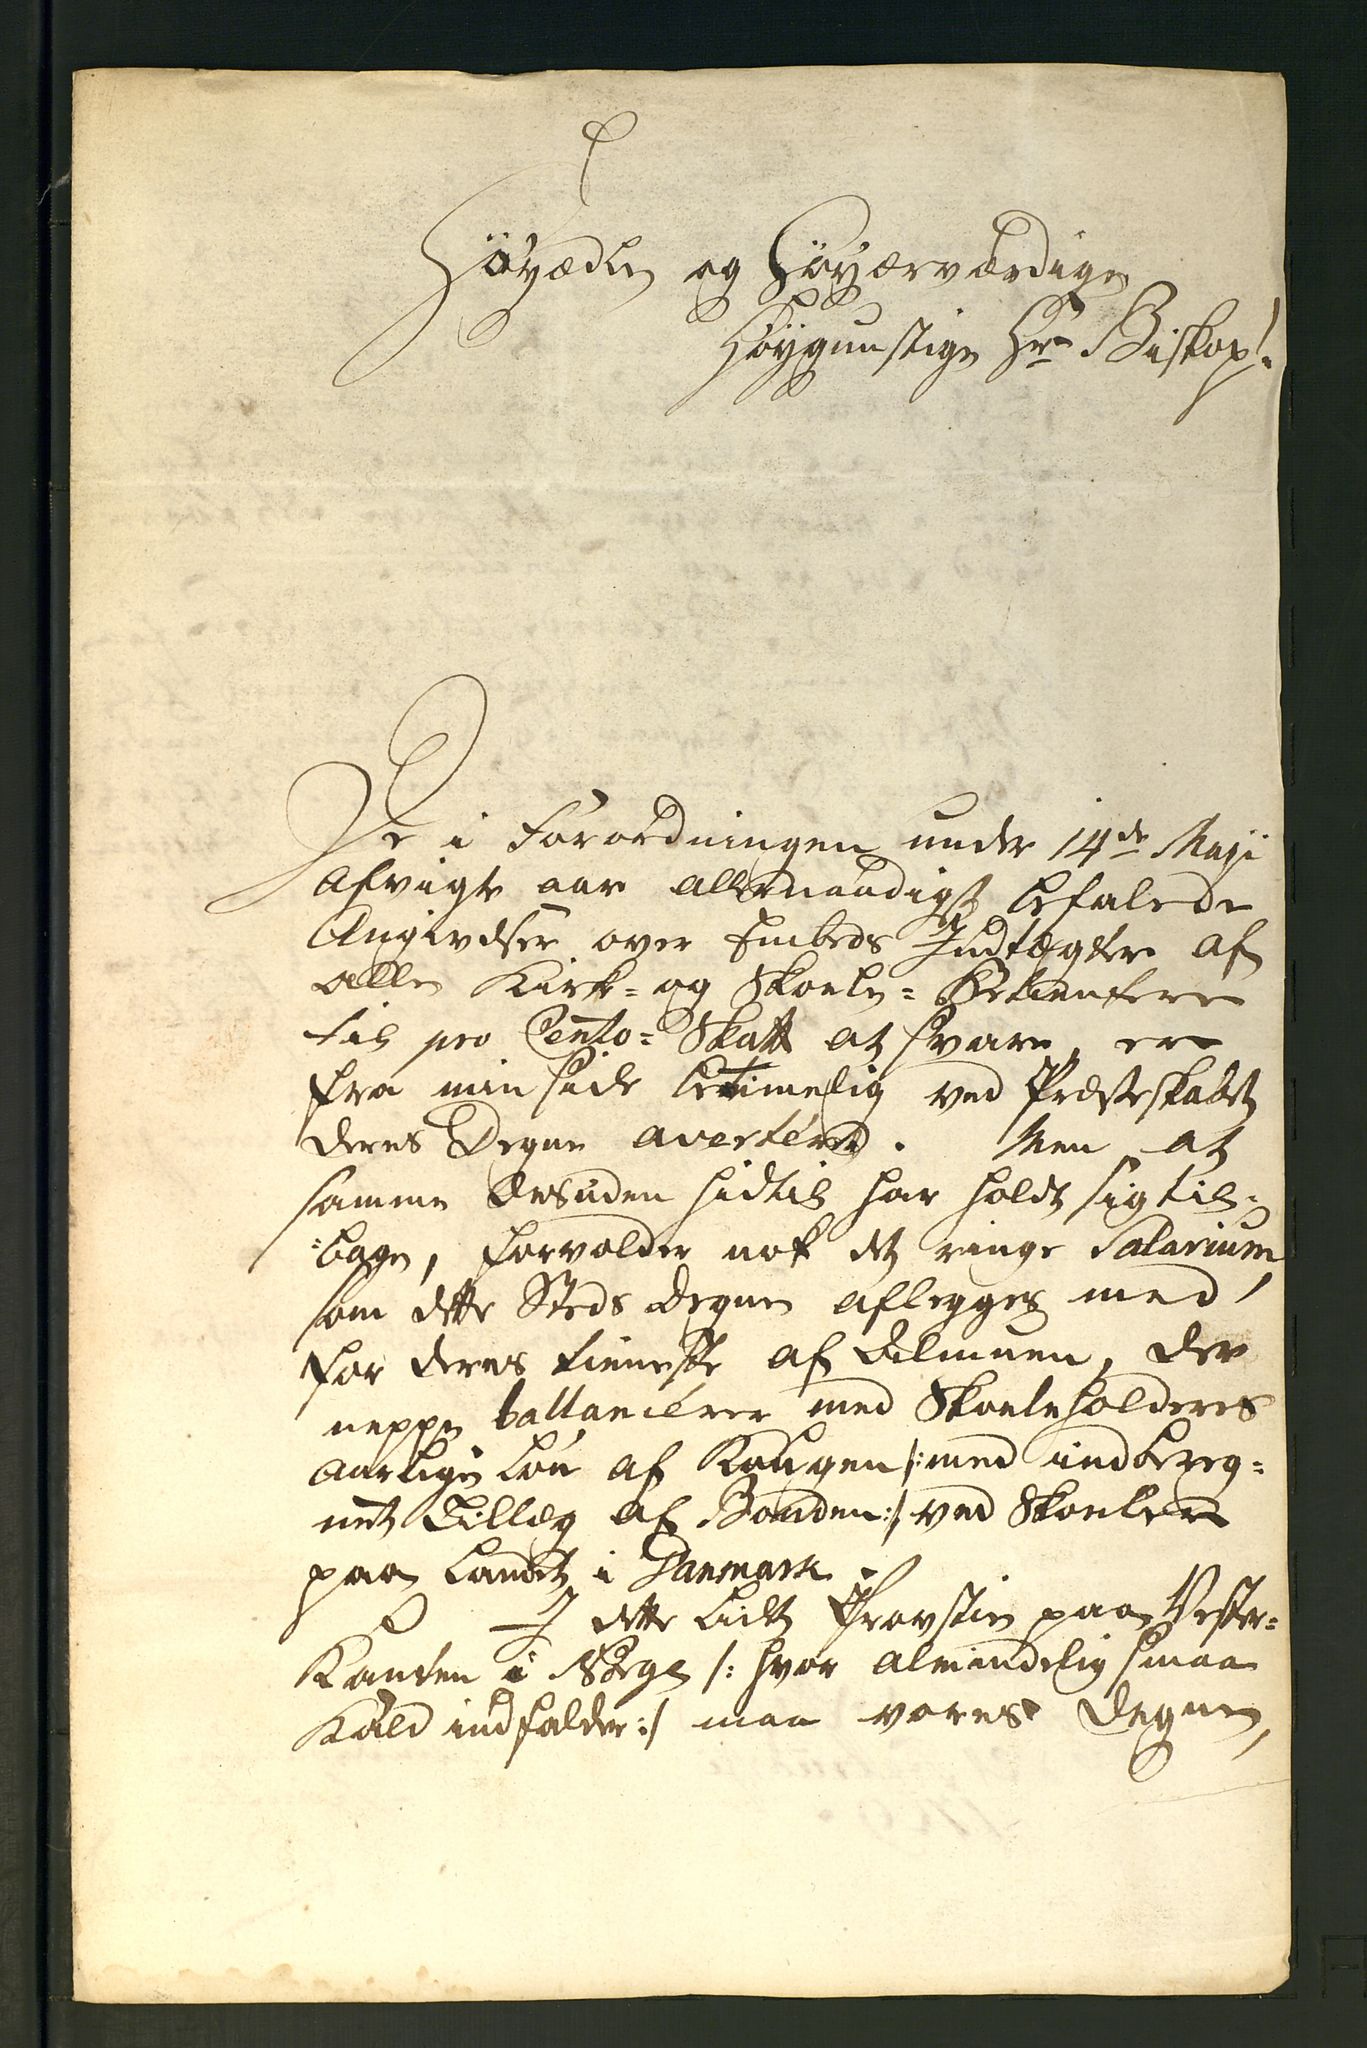 Höyædle og Höyærværdige
Höygunstige Hr Biskop!
De i Forordningen under 14de Maji
afvigte aar allernaadigst befalede
Angivelser over Embeds Indtægter af
alle Kirke- og Skoele-Betientere
til pro Cento-Skatt at svare, ere
fra min side betimelig ved Præsteskabet
deres Degne averteret. Men at
samme desuden hidtil har holdt sig til-
bage, forvolder nok det ringe Salarium
som dette Steds Degne aflegges med,
for deres tieneste af Almuen, der
neppe ballancérer med Skoeleholderes
aarlige løn af Kongen /: med indbereg-
net Tillæg af Bonden :/ ved Skoelerne
paa Landet i Danmark.
I dette lidet Provstie paa Vester-
Kanten i Norge /: hvor almindelig smaa
Kald indfalder :/ maa vores Degne,